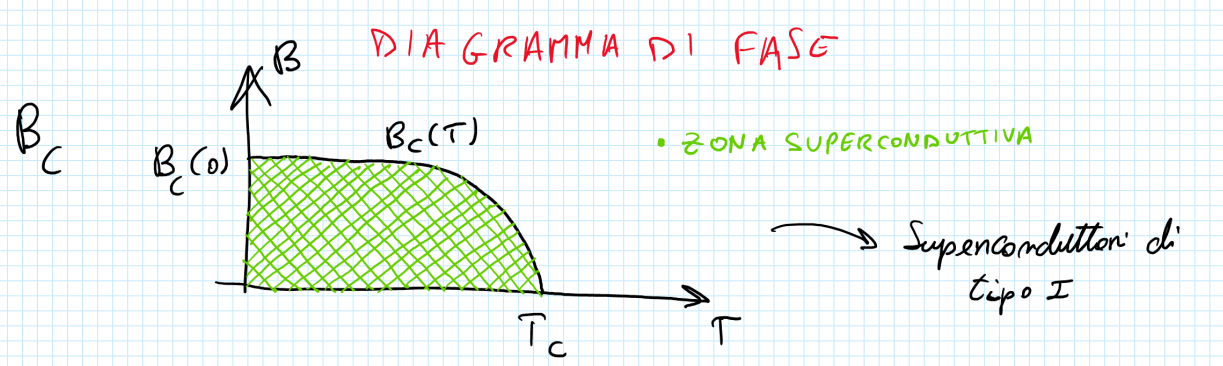 DIAGRAMMA DI FASE
B
B_C
B_C(0)
B_C(T)
• ZONA SUPERCONDUTTIVA
Superconduttori di
tipo I
T_C
T